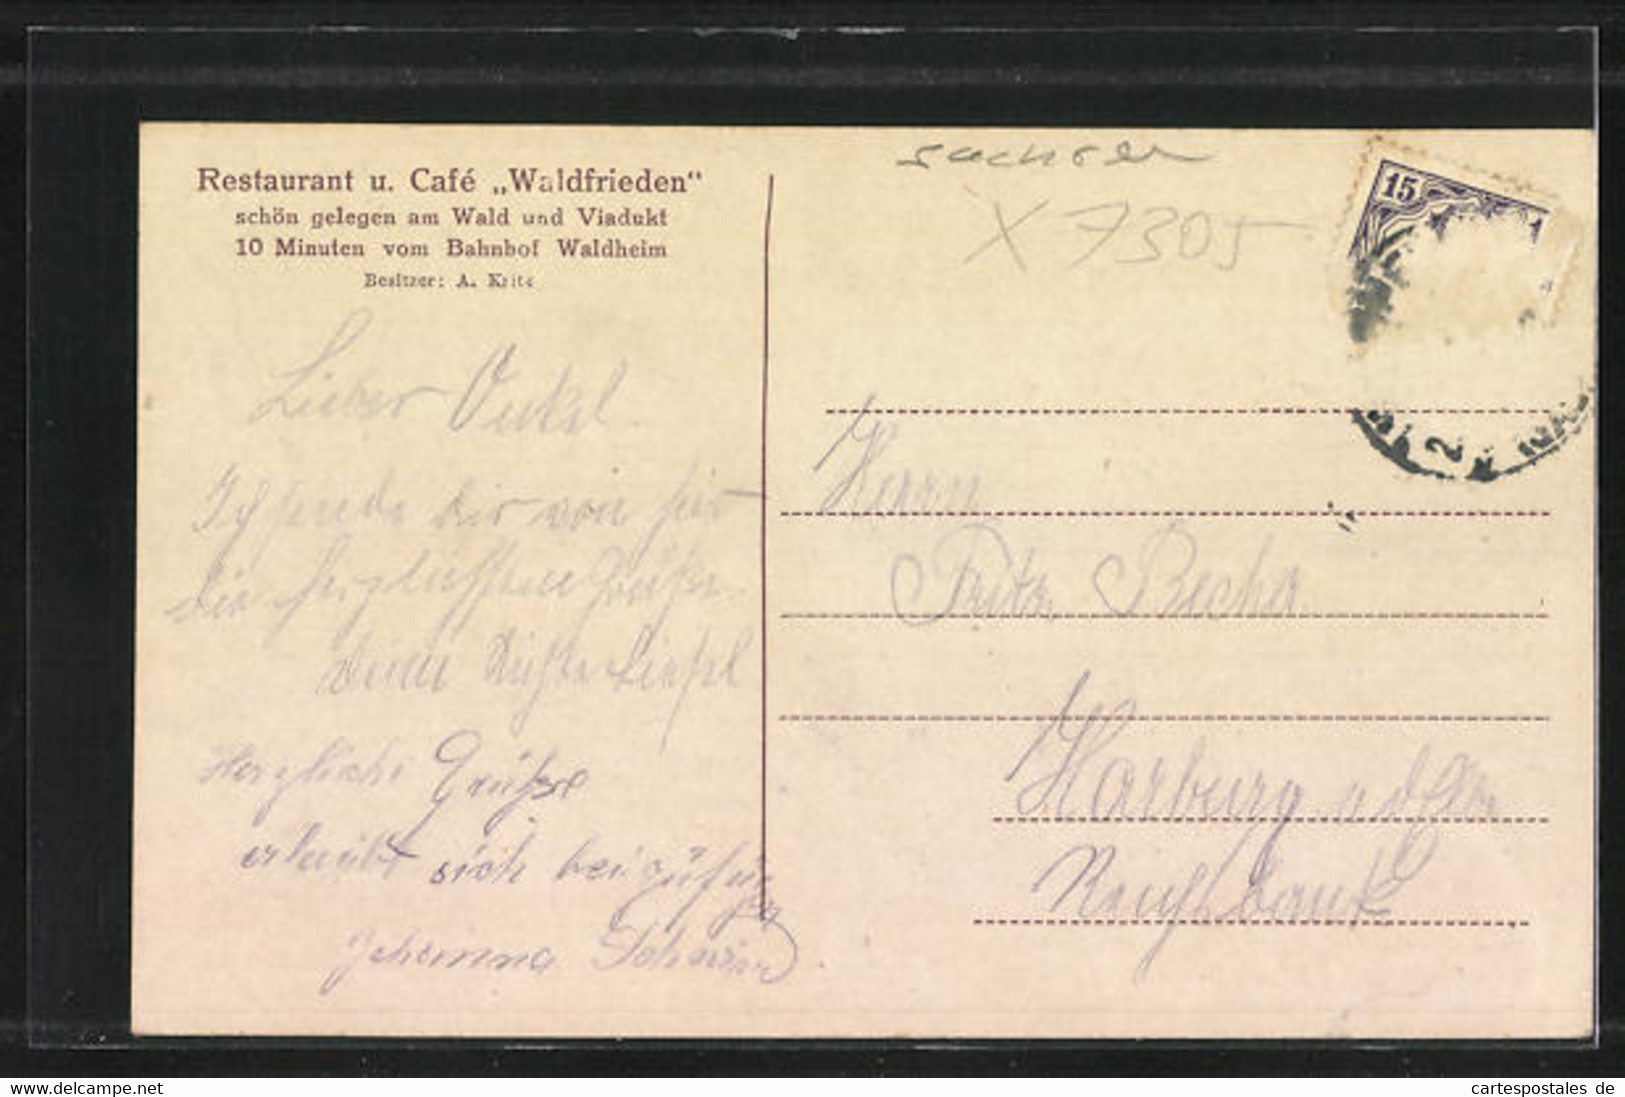 Restaurant u. Café „Waldfrieden“
schön gelegen am Wald und Viadukt
10 Minuten vom Bahnhof Waldheim
Besitzer: A.
Lieber Onkel.
Ich sende dir von hier
die herzlichsten Grüße.
deine Nichte Liesel
Herzliche Grüße
erlaubt sich beizufügen
Johanna
Sachsen
X 7305
15
2
Herrn
Fritz
Harburg a d Elbe
Reichsbank
delcampe.net
cartespostales de